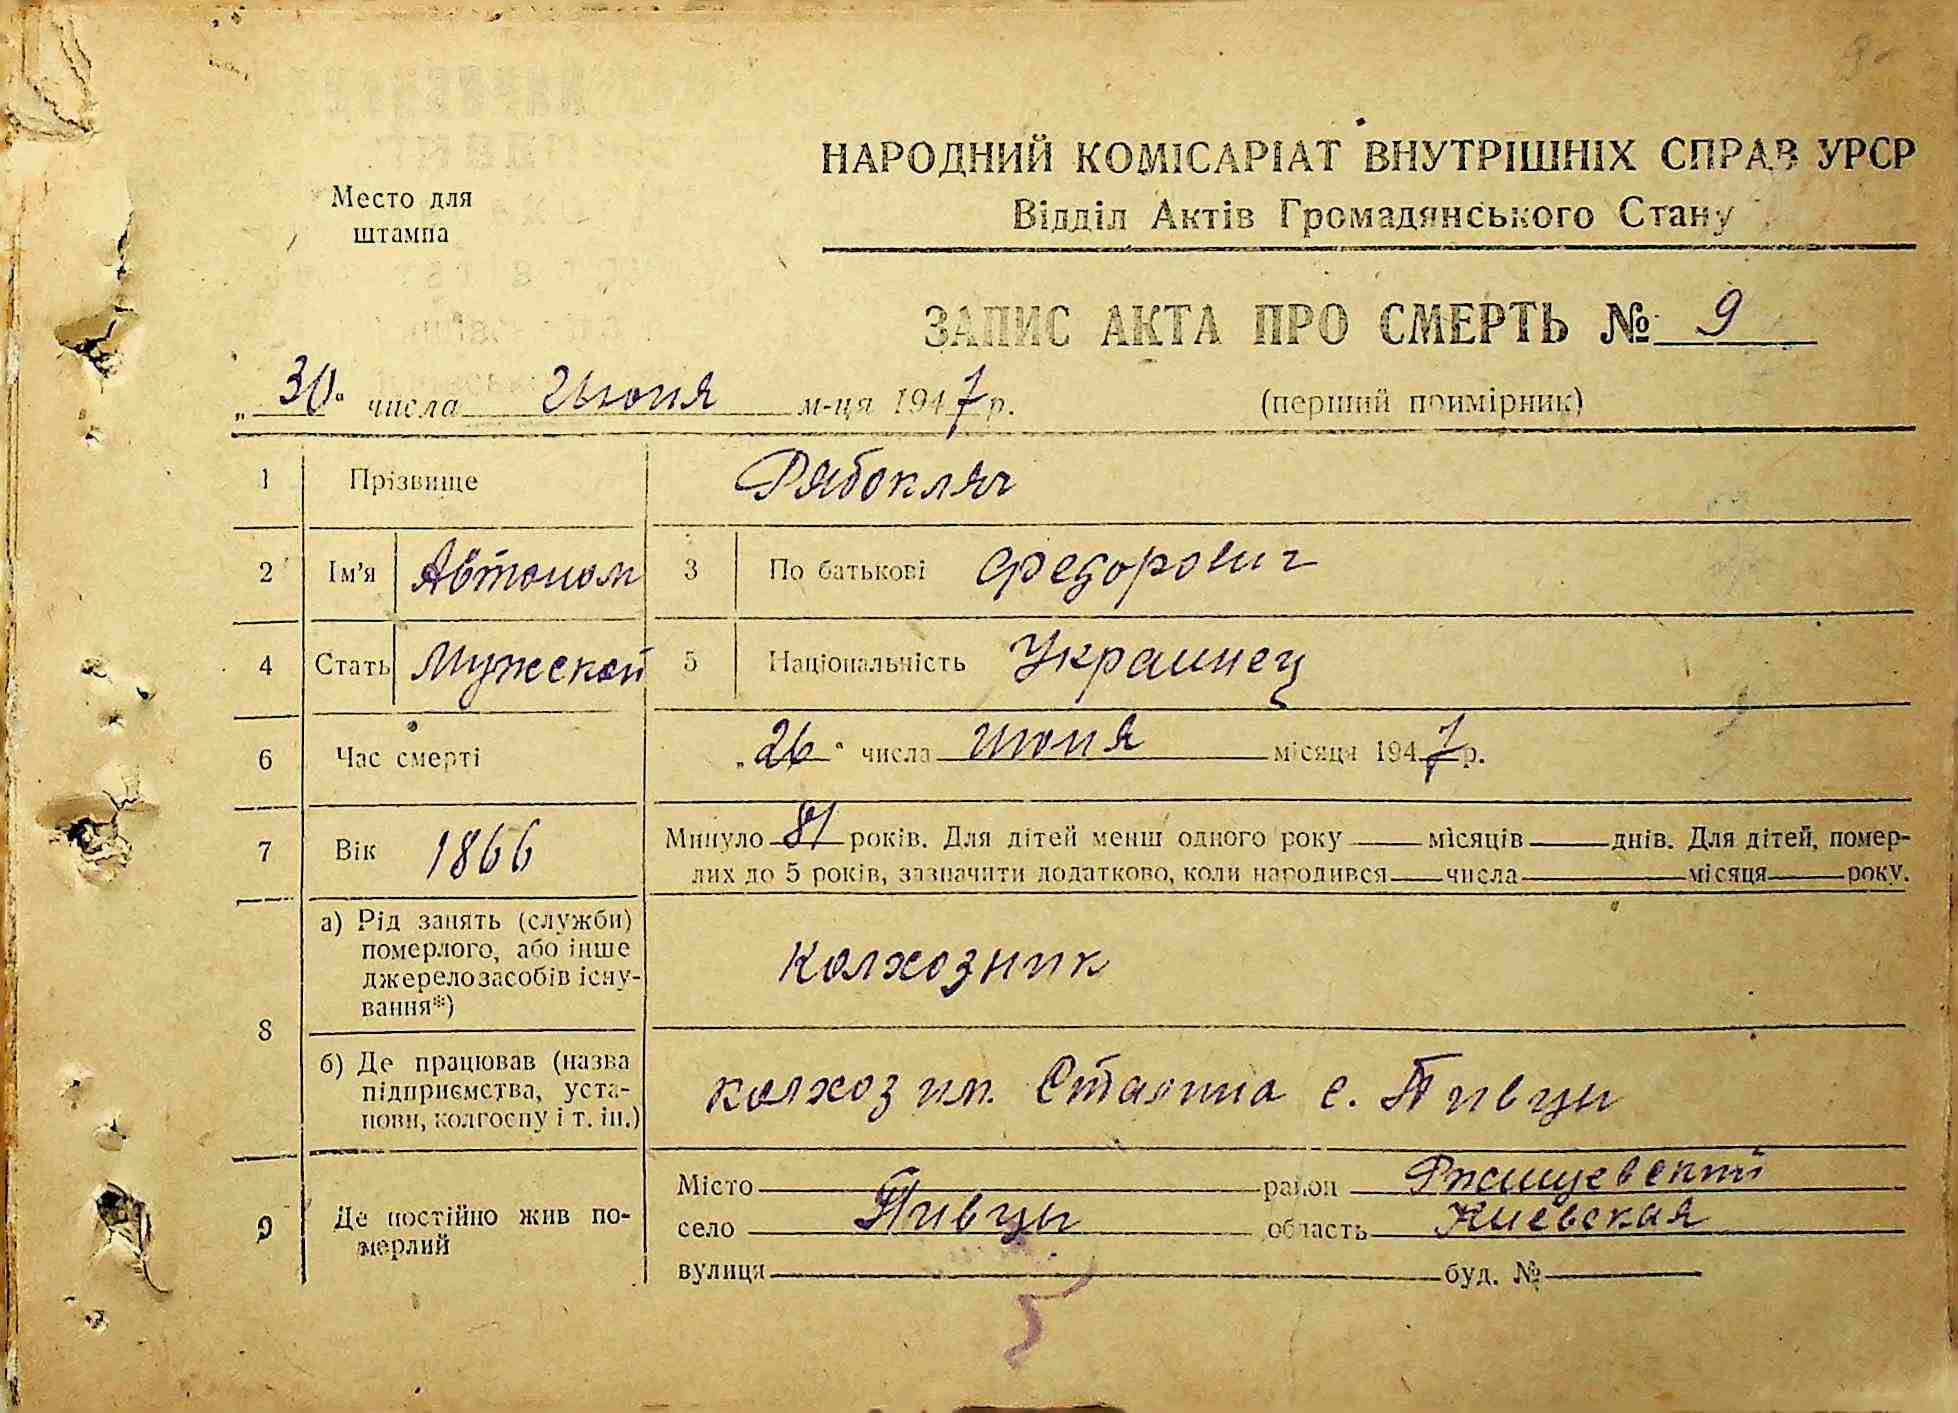 Место для
штампа
НАРОДНИЙ КОМІСАРІАТ ВНУТРІШНІХ СПРАВ УРСР
Відділ Актів Громадянського Стану
ЗАПИС АКТА ПРО СМЕРТЬ № 9
„30“ числа Июня м-ця 1947 р. (перший примірник)
1 Прізвище Рябокляч
2 Ім'я Автоном 3 По батькові Федорович
4 Стать Мужской 5 Національність Украинец
6 Час смерті „26“ числа июня місяця 1947 р.
7 Вік 1866 Минуло 81 років. Для дітей менш одного року місяців днів. Для дітей, помер-
лих до 5 років, зазначити додатково, коли народився числа місяця року.
8 а) Рід занять (служби)
померлого, або інше
джерело засобів існу-
вання*)
колхозник
б) Де працював (назва
підприємства, уста-
нови, колгоспу і т. ін.)
колхоз им. Сталина с. Пивцы
9 Де постійно жив по-
мерлий
Місто район Ржищевский
село Пивцы область Киевская
вулиця буд. №